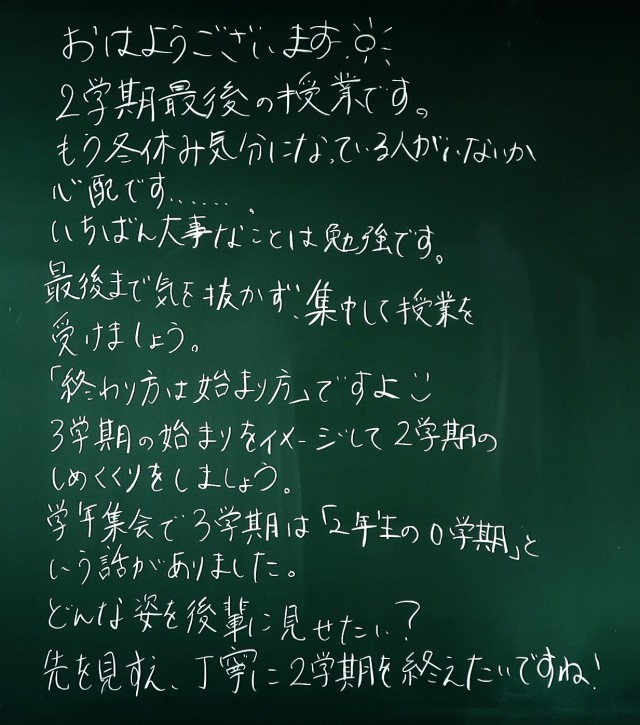 おはようございます.
2学期最後の授業です。
もう冬休み気分になっている人がいないか
心配です......。
いちばん大事なことは勉強です。
最後まで気を抜かず、集中して授業を
受けましょう。
「終わり方は始まり方」ですよ
3学期の始まりをイメージして2学期の
しめくくりをしましょう。
学年集会で3学期は「2年生の0学期」と
いう話がありました。
どんな姿を後輩に見せたい?
先を見すえ、丁寧に2学期を終えたいですね!